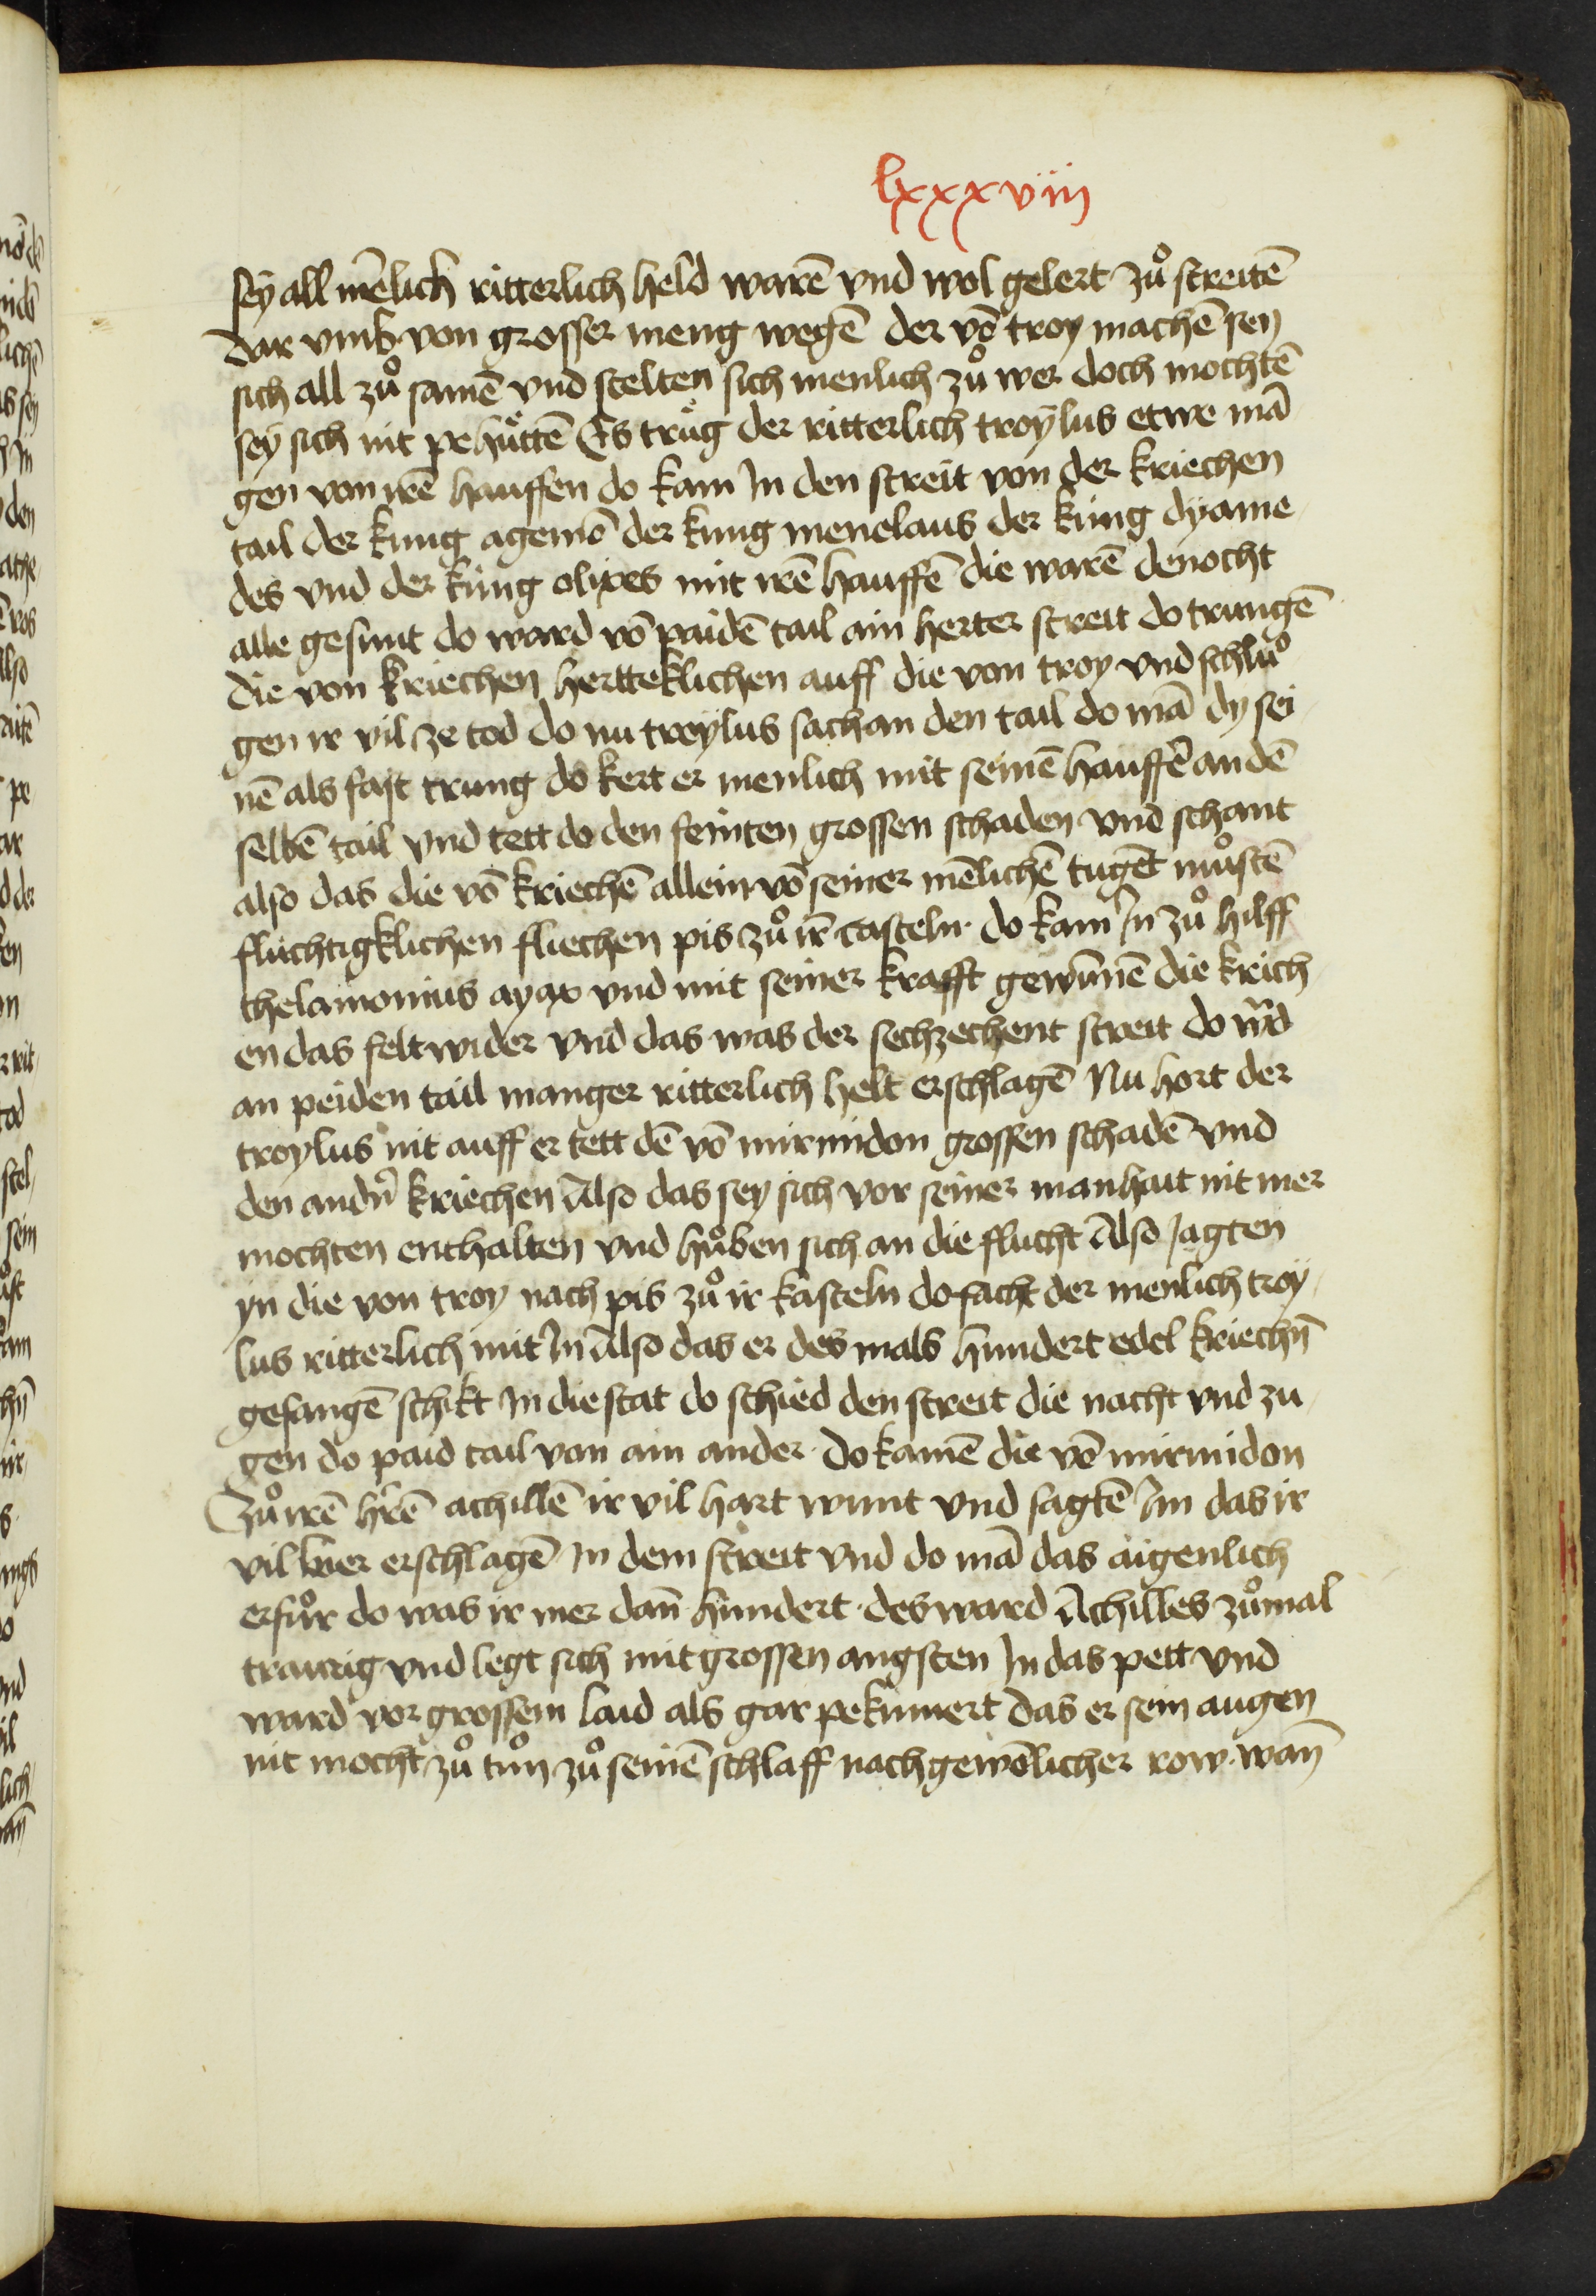 lxxxviij
sey all mēlich ritterlich held warē vnd wol gelert zů streitē
dar vmb von grosser meng wegē der vō troy machē sey
sich all zů samē vnd stelten sich menlich zů wer doch mochtē
sey sich nit pehůttē Es trůg der ritterlich troylus etwe mā
gen von irē hauffen do kam In den streit von der kriechen
tail der kung agemō der kung menelaus der kung dyame
des vnd der kung olixes mit irē hauffē die warē denocht
alle gesunt do ward vō paidē tail ain herter streit do trungē
die von kriechen hertteklichen auff die von troy vnd schlů
gen ir vil ze tod do nu troylus sach an den tail do mā dy sei
nē als fast trung do kert er menlich mit seinē hauffē an dē
selbē tail vnd tett do den feinten grossen schaden vnd schant
also das die vō kriechē allein vō seiner mēlichē tugēt můstē
fluchtigklichen fliechen pis zů ir̄ casteln do kam In zů hilff
thelamonius ayax vnd mit seiner krafft gewūnē die kriech
en das felt wider vnd das was der sechzechent streit do w̄d
an peiden tail manger ritterlich helt erschlagē Nu hort der
troylus nit auff er tett dē vō mirmidon grossen schadē vnd
den andn̄ kriechen Also das sey sich vor seiner manhait nit mer
mochten enthalten vnd hůben sich an die flucht Also Jagten
yn die von troy nach pis zů ir kasteln do facht der menlich troy
lus ritterlich mit In Also das er des mals hundert edel kriechn̄
gefangē schikt In die stat do schied den streit die nacht vnd zu
gen do paid tail von ain ander do kamē die vō mirmidon
Zů irē hr̄ē achillē ir vil hart wunt vnd sagtē Im das ir
vil wer erschlagē In dem streit vnd do mā das aigenlich
erfůr do was ir mer dan̄ hundert des ward Achilles zůmal
traurig vnd legt sich mit grossen angsten In das pett vnd
ward vor grossem laid als gar pekumert das er sein augen
nit mocht zů tůn zů seinē schlaff nach gewōlicher row wan̄